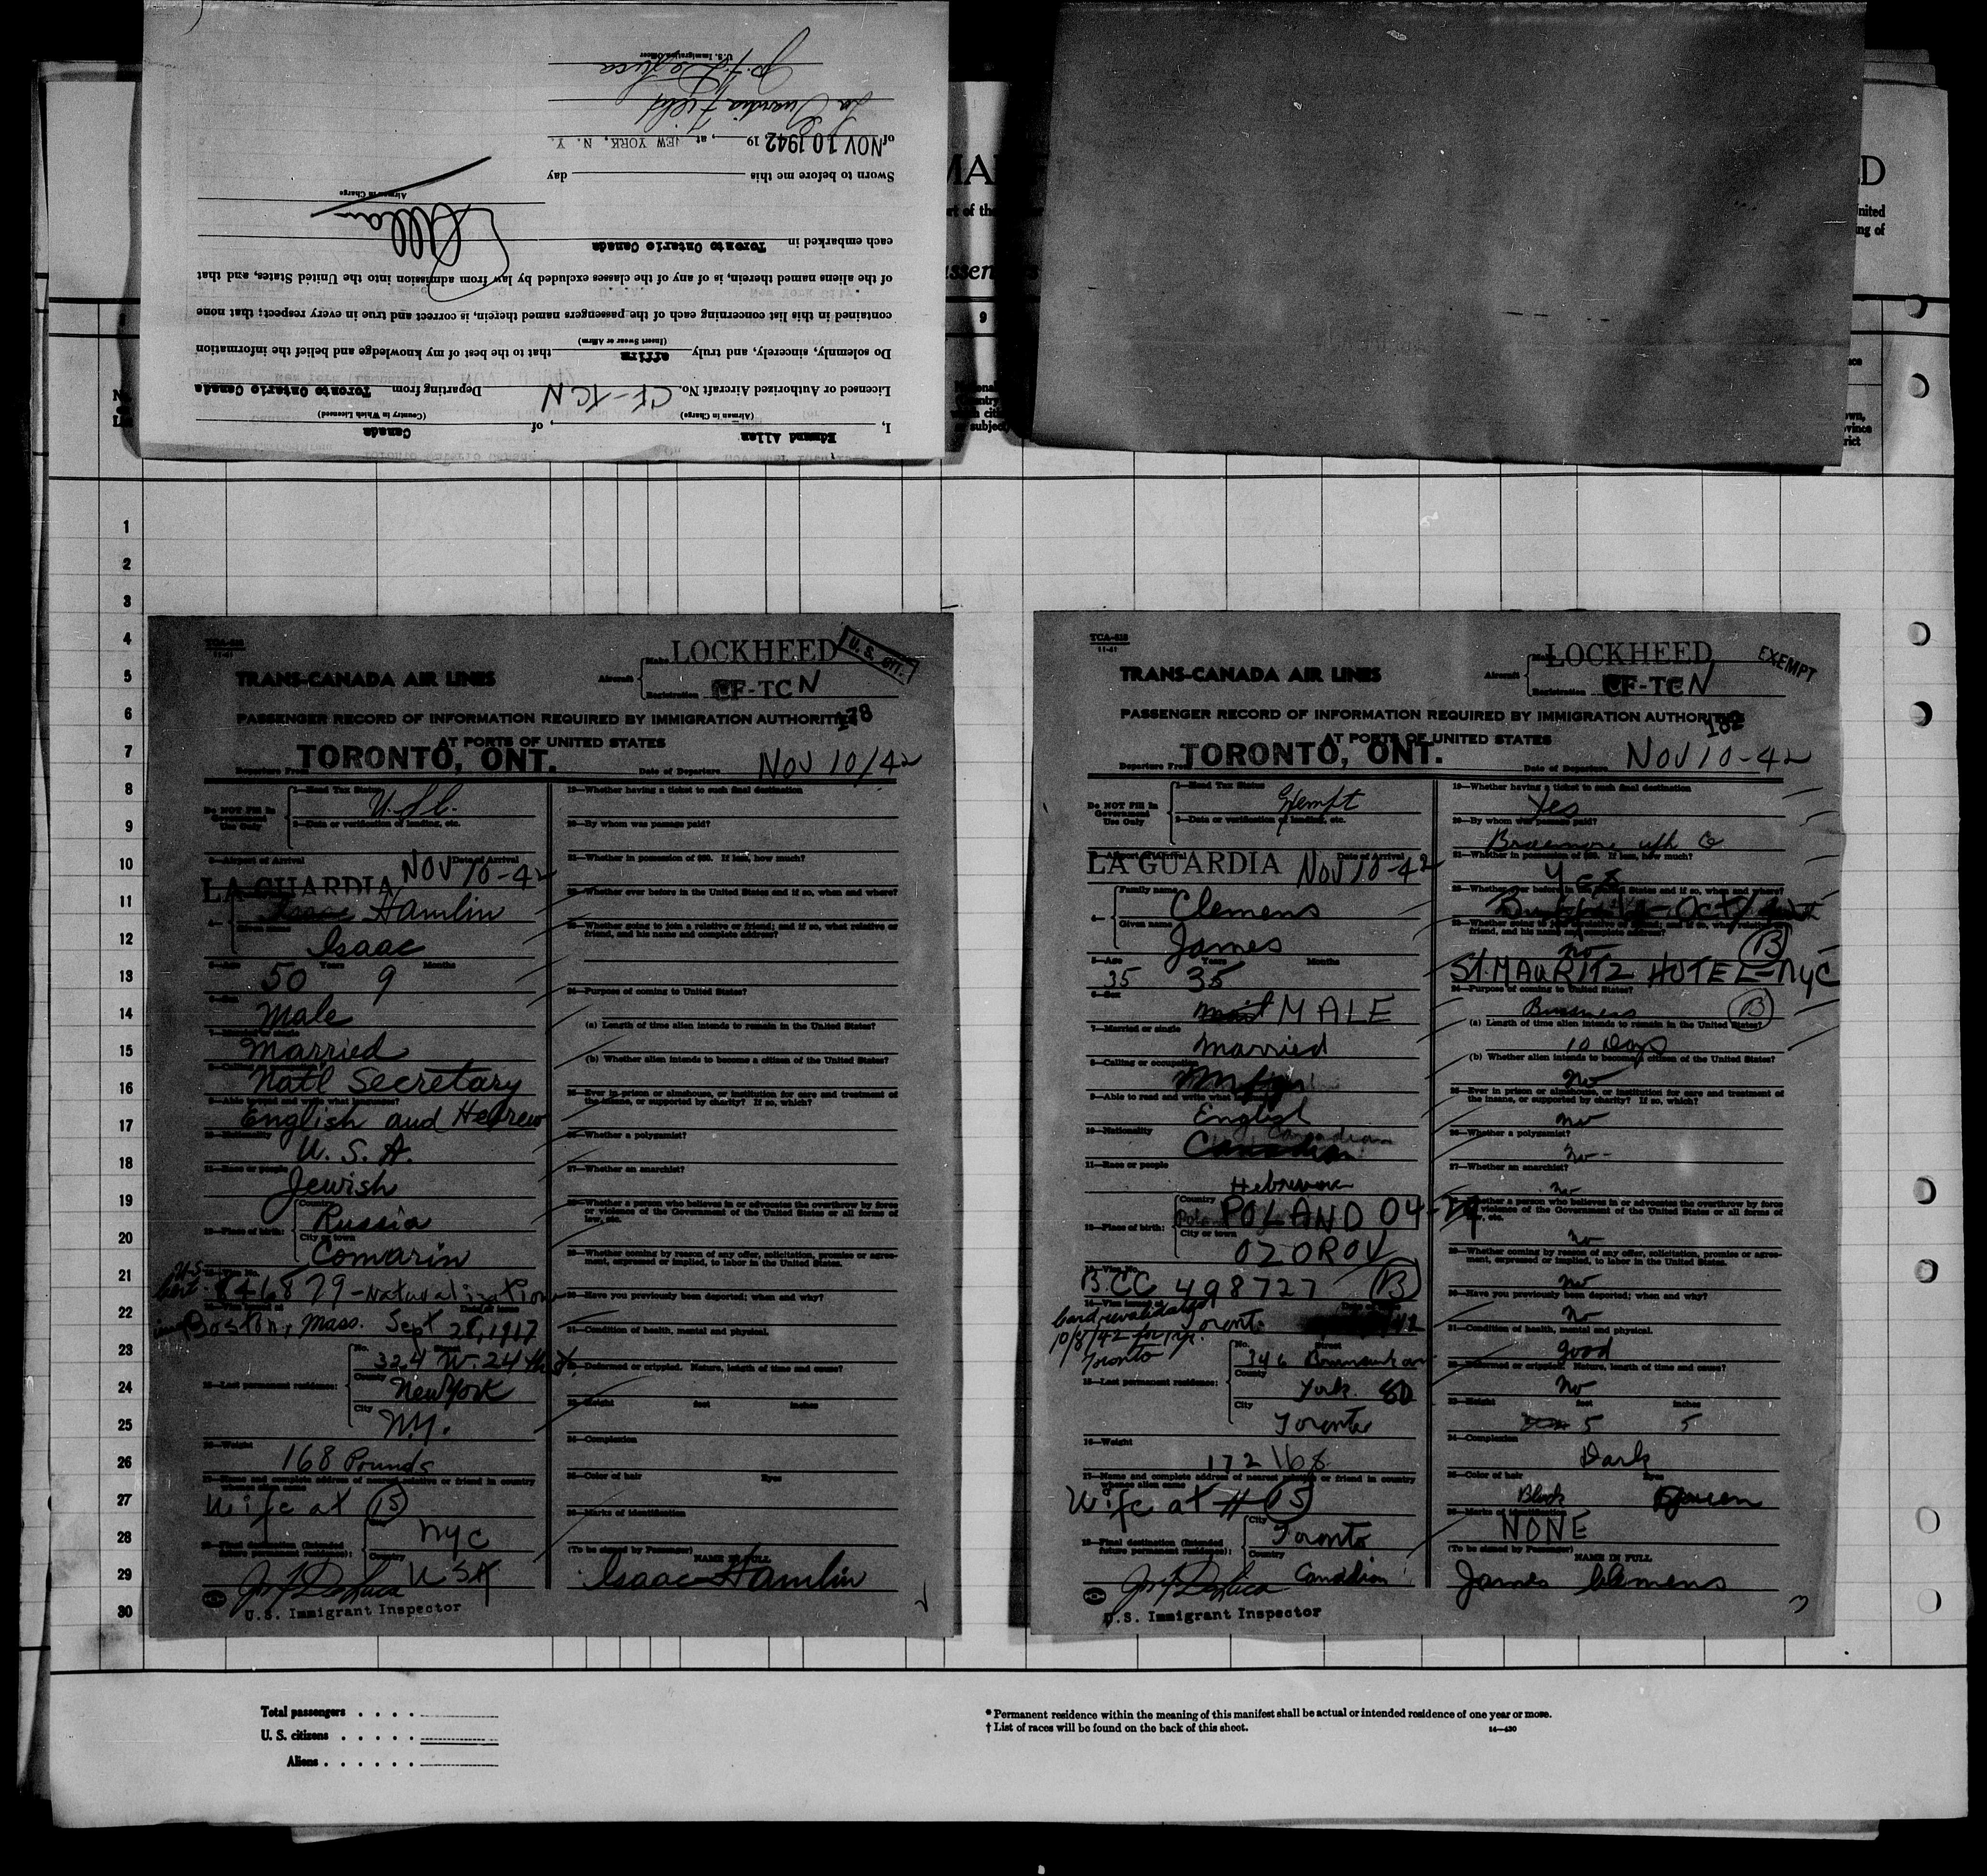 I, Edmund Allen, of Canada
(Airman in Charge) (Country in Which Licensed)
Licensed or Authorized Aircraft No. CF-TCN Departing from Toronto Ontario Canada
Do solemnly, sincerely, and truly affirm that to the best of my knowledge and belief the information
(Insert Swear or Affirm)
contained in this list concerning each of the passengers named therein, is correct and true in every respect; that none
of the aliens named therein, is of any of the classes excluded by law from admission into the United States, and that
each embarked in Toronto Ontario Canada
Airman in Charge
Sworn to before me this day
of NOV 10 1942 19 , at NEW YORK, N. Y.
La Guardia Field
U.S. Immigration Officer
TCA-
11-41
TRANS-CANADA AIR LINES
Aircraft
Make LOCKHEED
Registration CF-TCN
U. S. CIT.
PASSENGER RECORD OF INFORMATION REQUIRED BY IMMIGRATION AUTHORITIES
178
AT PORTS OF UNITED STATES
Departure From TORONTO, ONT. Date of Departure NOV 10/42
Do NOT Fill In
Government
Use Only
1—Head Tax Status U.S.C.
2—Date or verification of landing, etc.
3—Airport of Arrival LA GUARDIA Date of Arrival NOV 10-42
4— Isaac Hamlin
Given name
Isaac
5—Age 50 Years 9 Months
6—Sex
Male
7—Married or single
Married
8—Calling or occupation
Nat'l Secretary
9—Able to read and write what languages?
English and Hebrew
10—Nationality
U. S. A.
11—Race or people
Jewish
12—Place of birth:
Country
Russia
City or town
Comarin
13—Visa No.
846879 - Naturalization
14—Visa issued at Date of issue
Boston, Mass. Sept 28, 1917
15—Last permanent residence:
No. Street
324 W. 24th St.
County
New York
City
N.Y.
16—Weight
168 Pounds
17—Name and complete address of nearest relative or friend in country
whence alien came
Wife at (15)
18—Final destination (Intended
future permanent residence):
City
NYC
Country
USA
U.S. Immigrant Inspector
19—Whether having a ticket to such final destination
20—By whom was passage paid?
21—Whether in possession of $50. If less, how much?
22—Whether ever before in the United States and if so, when and where?
23—Whether going to join a relative or friend; and if so, what relative or
friend, and his name and complete address?
24—Purpose of coming to United States?
(a) Length of time alien intends to remain in the United States?
(b) Whether alien intends to become a citizen of the United States?
25—Ever in prison or almshouse, or institution for care and treatment of
the insane, or supported by charity? If so, which?
26—Whether a polygamist?
27—Whether an anarchist?
28—Whether a person who believes in or advocates the overthrow by force
or violence of the Government of the United States or all forms of
law, etc.
29—Whether coming by reason of any offer, solicitation, promise or agree-
ment, expressed or implied, to labor in the United States.
30—Have you previously been deported; when and why?
31—Condition of health, mental and physical.
32—Deformed or crippled. Nature, length of time and cause?
33—Height feet inches
34—Complexion
35—Color of hair Eyes
36—Marks of identification
(To be signed by Passenger) NAME IN FULL
Isaac Hamlin
TCA-
11-41
TRANS-CANADA AIR LINES
Aircraft
Make LOCKHEED
Registration CF-TCN
EXEMPT
PASSENGER RECORD OF INFORMATION REQUIRED BY IMMIGRATION AUTHORITIES
AT PORTS OF UNITED STATES
Departure From TORONTO, ONT. Date of Departure NOV 10-42
Do NOT Fill In
Government
Use Only
1—Head Tax Status Exempt
2—Date or verification of landing, etc.
LA GUARDIA Date of Arrival NOV 10-42
4—
Family name
Clemens
Given name
James
5—Age 35 Years 35 Months
6—Sex
MALE
7—Married or single
Married
8—Calling or occupation
9—Able to read and write what
English
10—Nationality
Canadian
11—Race or people
Hebrew
12—Place of birth:
Country
POLAND 04-
City or town
OZOROV
13—Visa No.
B.CC 498727 (B)
14—Visa issued at
Card revalidated Toronto 42
10/8/42
Toronto
15—Last permanent residence:
No. Street
346 Brunswick av
County
York
City
Toronto
16—Weight
172 168
17—Name and complete address of nearest relative or friend in country
whence alien came
Wife at # (15)
18—Final destination (Intended
future permanent residence):
City
Toronto
Country
Canadian
U.S. Immigrant Inspector
19—Whether having a ticket to such final destination
Yes
20—By whom was passage paid?
21—Whether in possession of $50. If less, how much?
Yes
22—Whether ever before in the United States and if so, when and where?
no
(B)
St. MAURITZ HOTEL - NYC
24—Purpose of coming to United States?
Business (B)
(a) Length of time alien intends to remain in the United States?
10 Days
(b) Whether alien intends to become a citizen of the United States?
No
25—Ever in prison or almshouse, or institution for care and treatment of
the insane, or supported by charity? If so, which?
no
26—Whether a polygamist?
no
27—Whether an anarchist?
no
Whether a person who believes in or advocates the overthrow by force
violence of the Government of the United States or all forms of
law, etc.
no
29—Whether coming by reason of any offer, solicitation, promise or agree-
ment, expressed or implied, to labor in the United States.
no
30—Have you previously been deported; when and why?
No
31—Condition of health, mental and physical.
good
32—Deformed or crippled. Nature, length of time and cause?
No
33—Height feet inches
5 5
34—Complexion
Dark
35—Color of hair Eyes
Black Green
36—Marks of identification
NONE
(To be signed by Passenger) NAME IN FULL
James Clemens
1
2
3
4
5
6
7
8
9
10
11
12
13
14
15
16
17
18
19
20
21
22
23
24
25
26
27
28
29
30
Total passengers
U. S. citizens
Aliens
* Permanent residence within the meaning of this manifest shall be actual or intended residence of one year or more.
† List of races will be found on the back of this sheet.